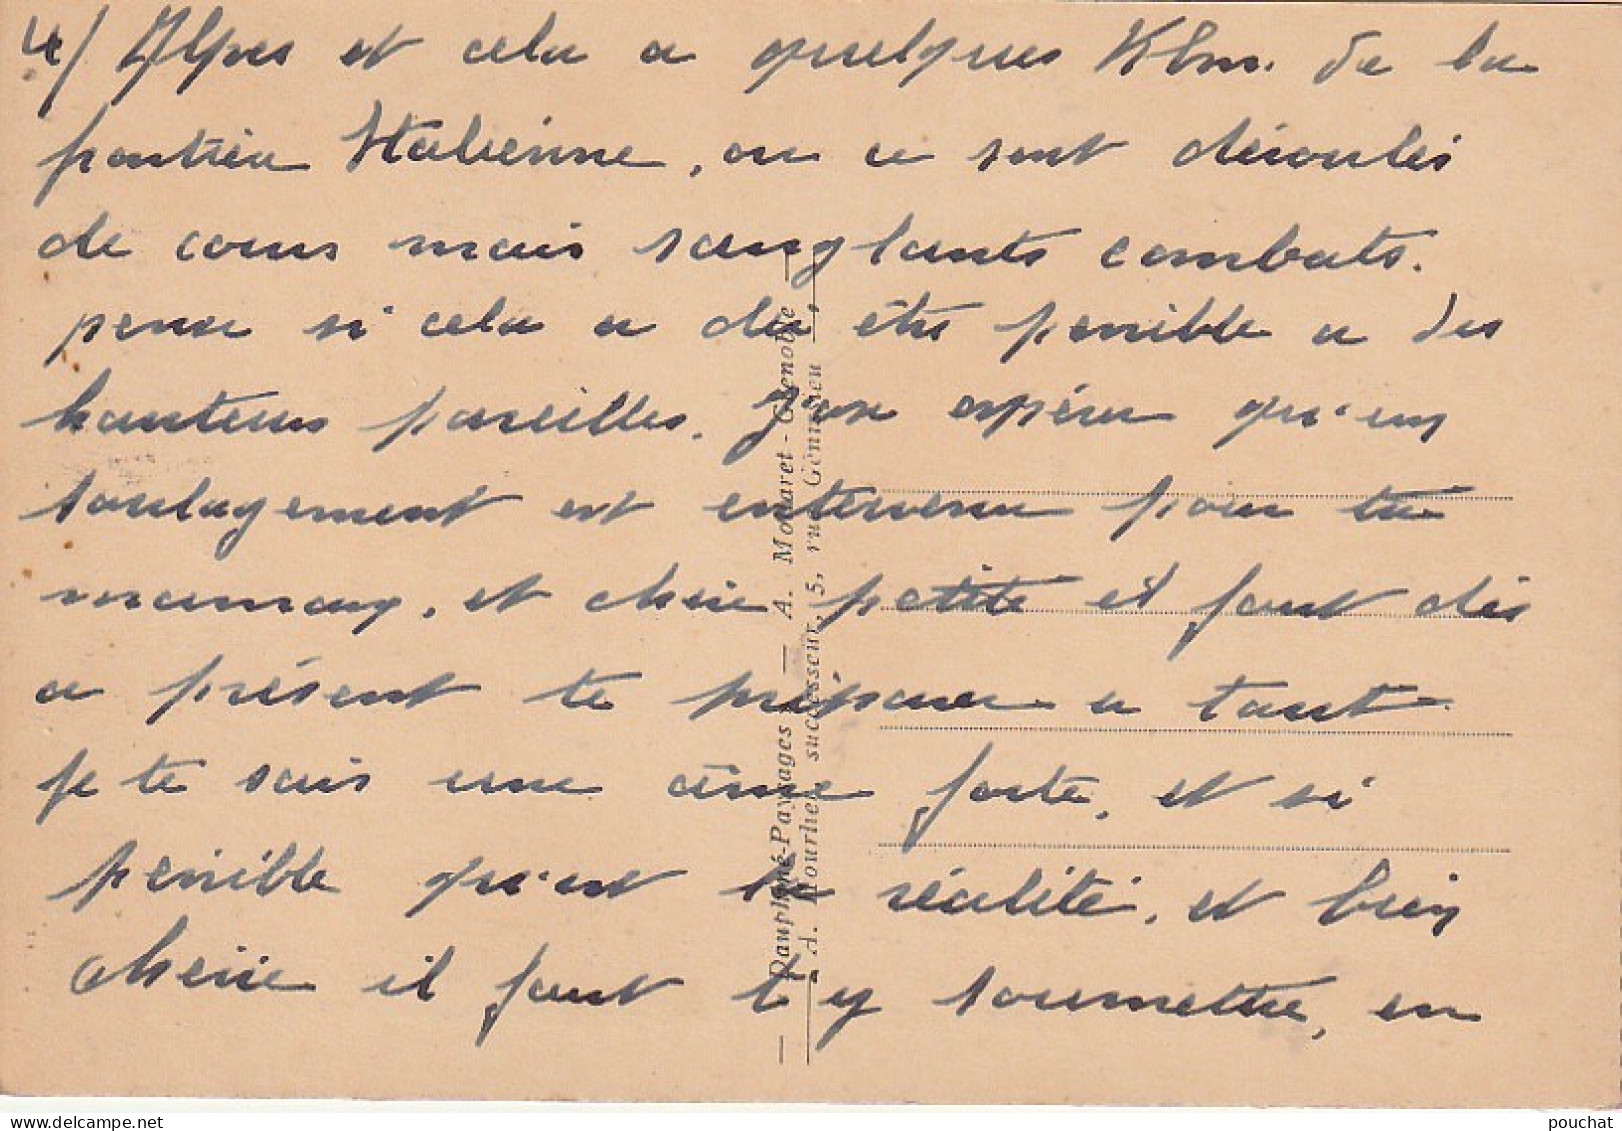 4/ Alpes et cela a quelques Klm. de la
frontière Italienne, ou ce sont déroulés
de cours mais sanglants combats.
pense si cela a du être penible a des
hauteurs pareilles. J'ose espérer qu'un
soulagement est intervenu pour ta
maman, et cherie petite il faut dès
a présent te préparer a tout
je te sais une âme forte, et si
penible qu'est la réalité, et bien
cherie il faut t'y soumettre, en
— Dauphiné-Paysages — A. Mollaret - Grenoble —
A. Mourhet, successeur, 5, rue Génissieu
www.delcampe.net
pouchat